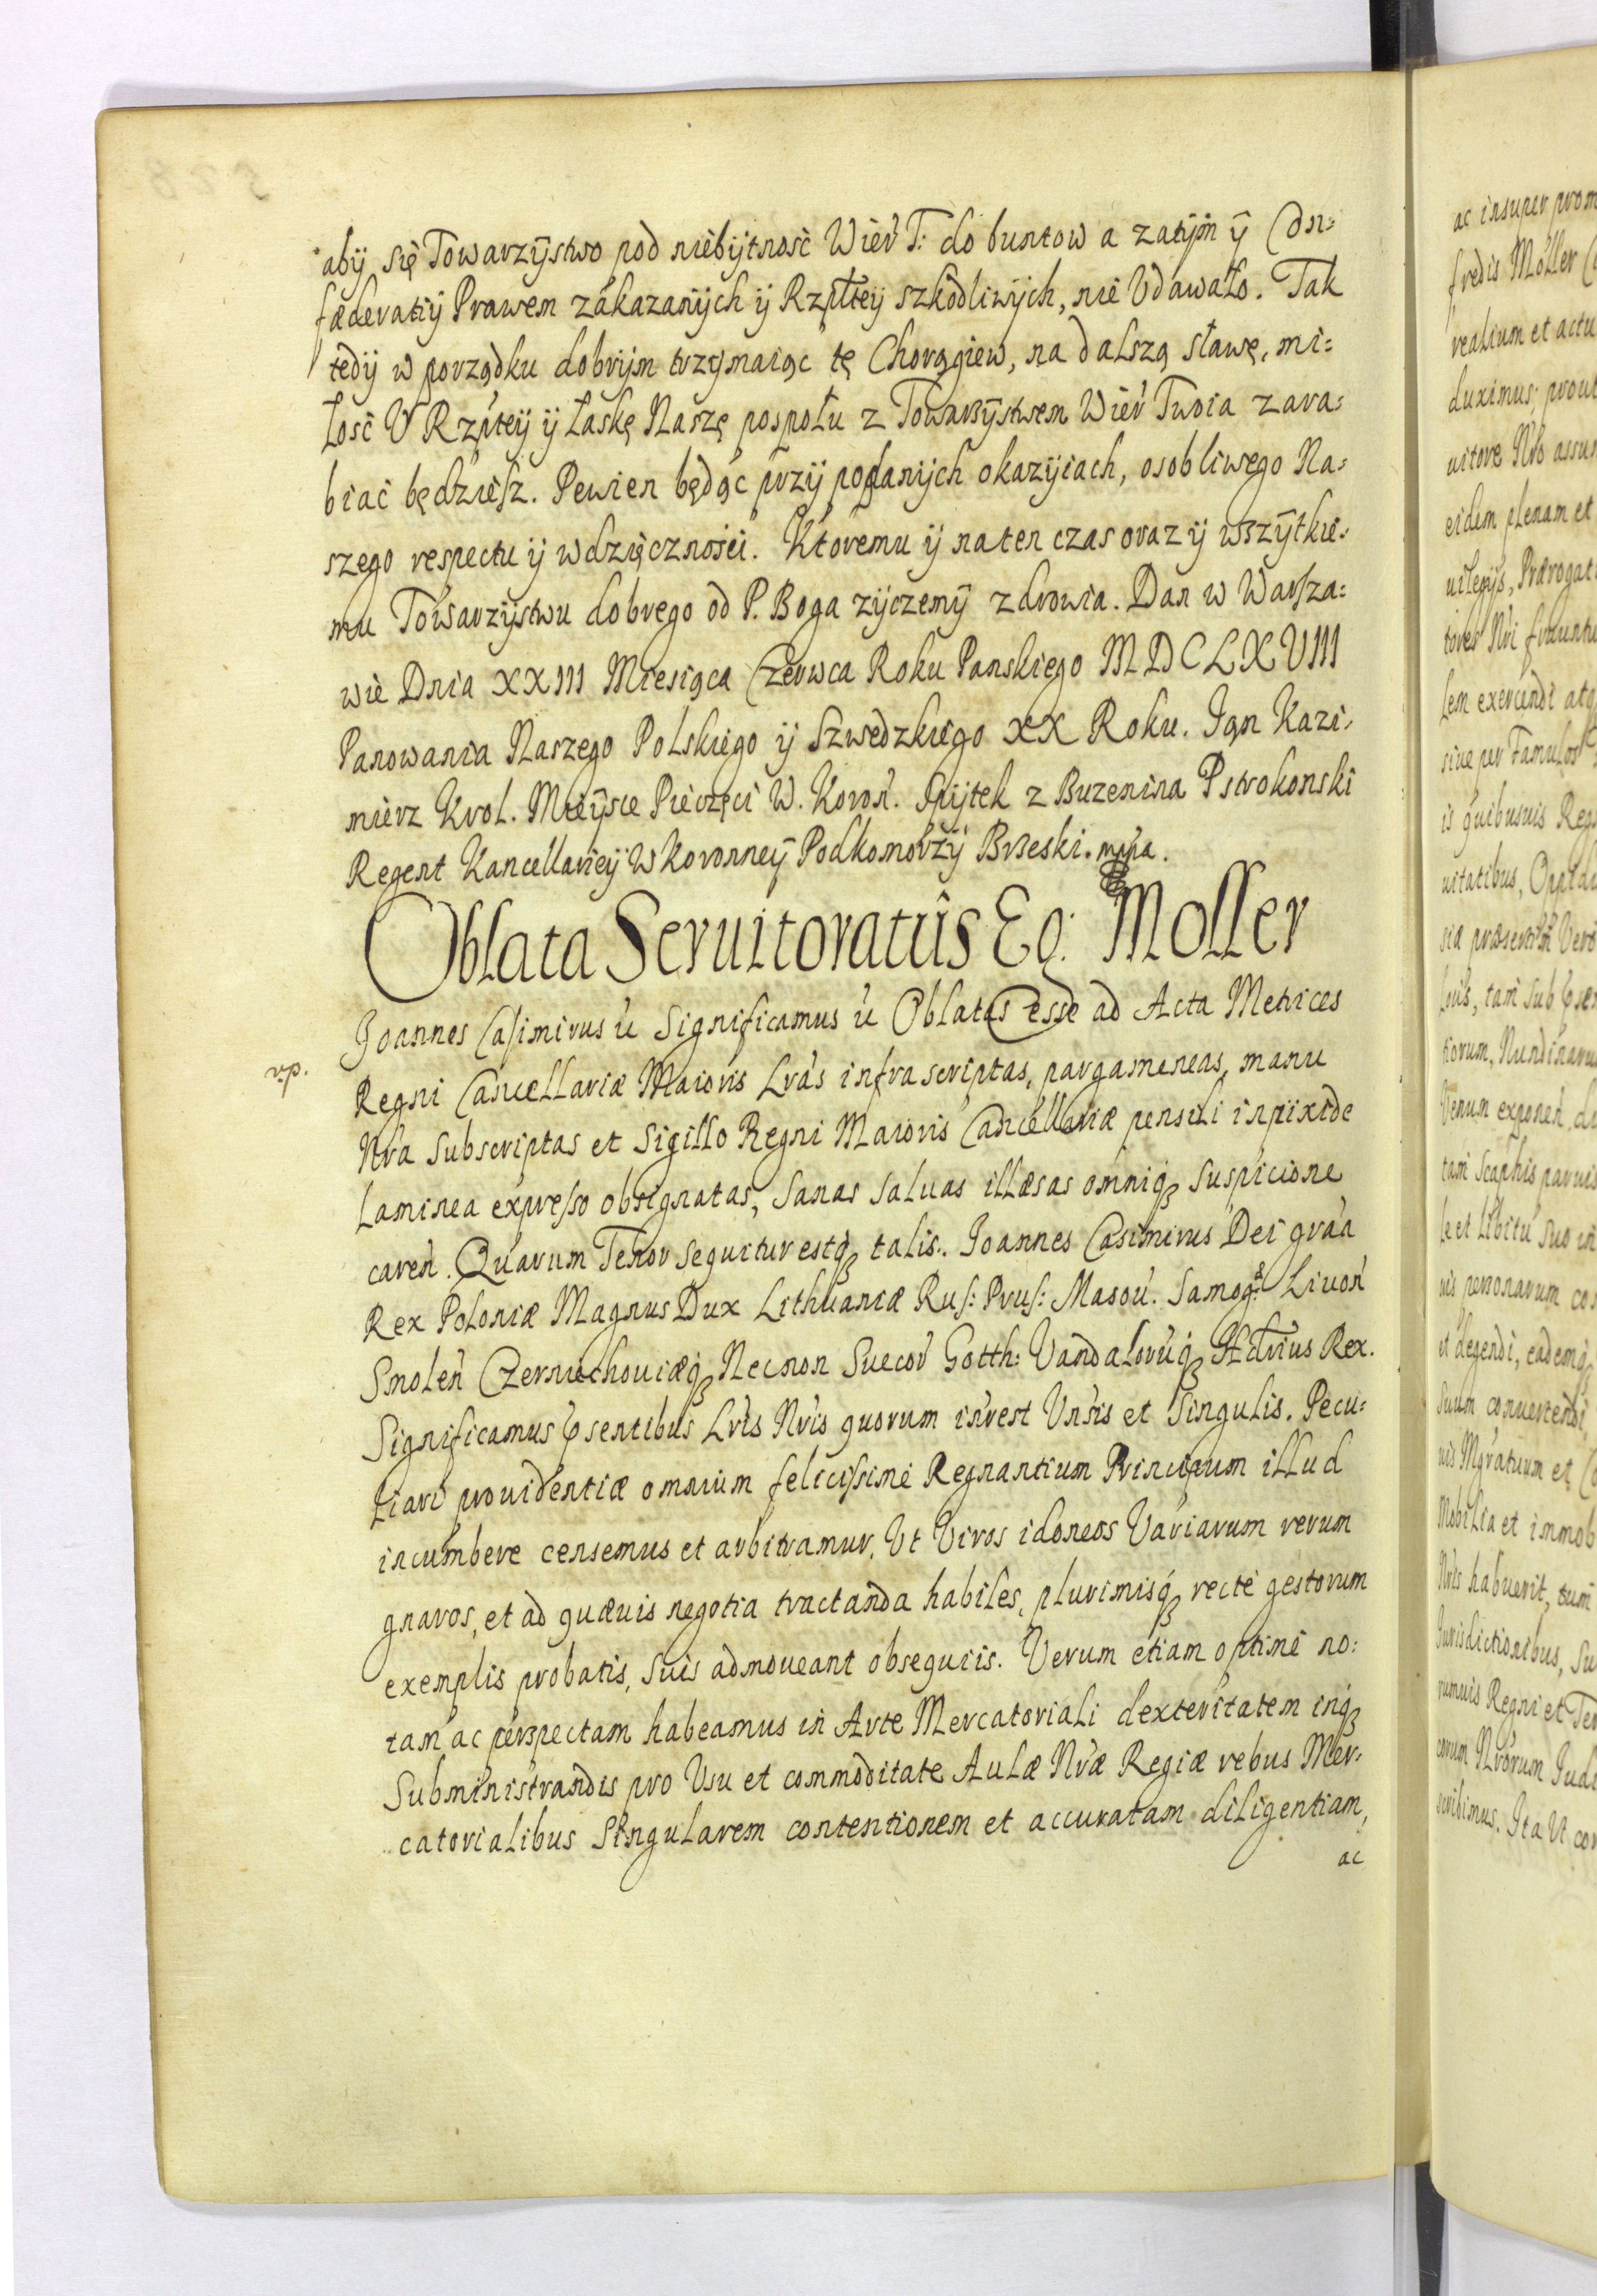 abÿ się Towarzÿstwo pod niebÿtność Wier̃ T: do buntow a zatÿm ÿ Con=
fæderatiÿ Prawem zakazanÿch ÿ Rzplteÿ szkodliwÿch, nie Udawało. Tak
tedÿ w porządku dobrÿm trzÿmaiąc tę Chorągiew, na dalszą sławę, mi=
łość U Rzpteÿ ÿ łaskę Naszę pospołu z Towarzÿstwem Wier̃ Twoia zara=
biać będziesz. Pewien będąc przÿ podanÿch okazÿiach, osobliwego Na=
szego respectu ÿ wdzięczności. Ktoremu ÿ na ten czas oraz ÿ wszÿtkie=
mu Towarzÿstwu dobrego od P. Boga zÿczemÿ zdrowia. Dan w Warsza=
wie Dnia XXIII Miesiąca Czerwca Roku Panskiego MDCLXVIII
Panowania Naszego Polskiego ÿ Szwedzkiego XX Roku. Jan Kazi=
mierz Krol. Mieÿsce Pieczęci W. Koroń. Spÿtek z Buzenina Pstrokonski
Regent Kancellarieÿ W Koronneÿ Podkomorzÿ Brzeski. mpa.
Oblata Seruitoratûs Eg: Moller
Joannes Casimirus ũ Significamus ũ Oblatas esse ad Acta Metrices
Regni Cancellariæ Maioris Lrãs infrascriptas, pargameneas, manu
Nrã Subscriptas et Sigillo Regni Maioris Cancellariæ pensili in pixide
Laminea expresso obsignatas, Sanas Saluas illæsas omniqꝫ Suspicione
careñ. Quarum Tenor sequitur estqꝫ talis. Joannes Casimirus Dei grãa
Rex Poloniæ Magnus Dux Lithuaniæ Rus: Prus: Masoũ. Samog: Liuoñ
Smoleñ Czerniechouiæqꝫ Necnon Suecor̃ Gotth: Vandalorũqꝫ Hærĩus Rex.
Significamus p̃sentibus Lrĩs Nrĩs quorum inr̃est Vnr̃sis et Singulis. Pecu=
liari prouidentiæ omnium felicissime Regnantium Principum illud
incumbere censemus et arbitramur. Vt Viros idoneos Variarum rerum
gnaros, et ad quæuis negotia tractanda habiles, plurimisqꝫ recte gestorum
exemplis probatis, Suis admoueant obsequiis. Verum etiam optime no=
tam ac perspectam habeamus in Arte Mercatoriali dexteritatem inqꝫ
Subministrandis pro Vsu et commoditate Aulæ Nrã Regiæ rebus Mer=
catorialibus Singularem contentionem et accuratam diligentiam,
ac
ac insuper prom
fredis Moller
realium et actu
duximus; prout
uitore Nrõ assum
eidem plenam et
uilegijs, Prærogat
tores Nri fruuntu
lem exercendi atq
siue per Famulos
is quibusuis Reg
uitatibus, Oppid
Venum exponeñ
tam Scaphis paruis
le et libitu Suo in
nis personarum co
et degendi, eademq
Suum conuertendi
Mobilia et immob
Nris habuerit, tum
Jurisdictionibus, Su
rumuis Regni et Ter
corum Nrõrum Judi
scribimus. Ita Vt